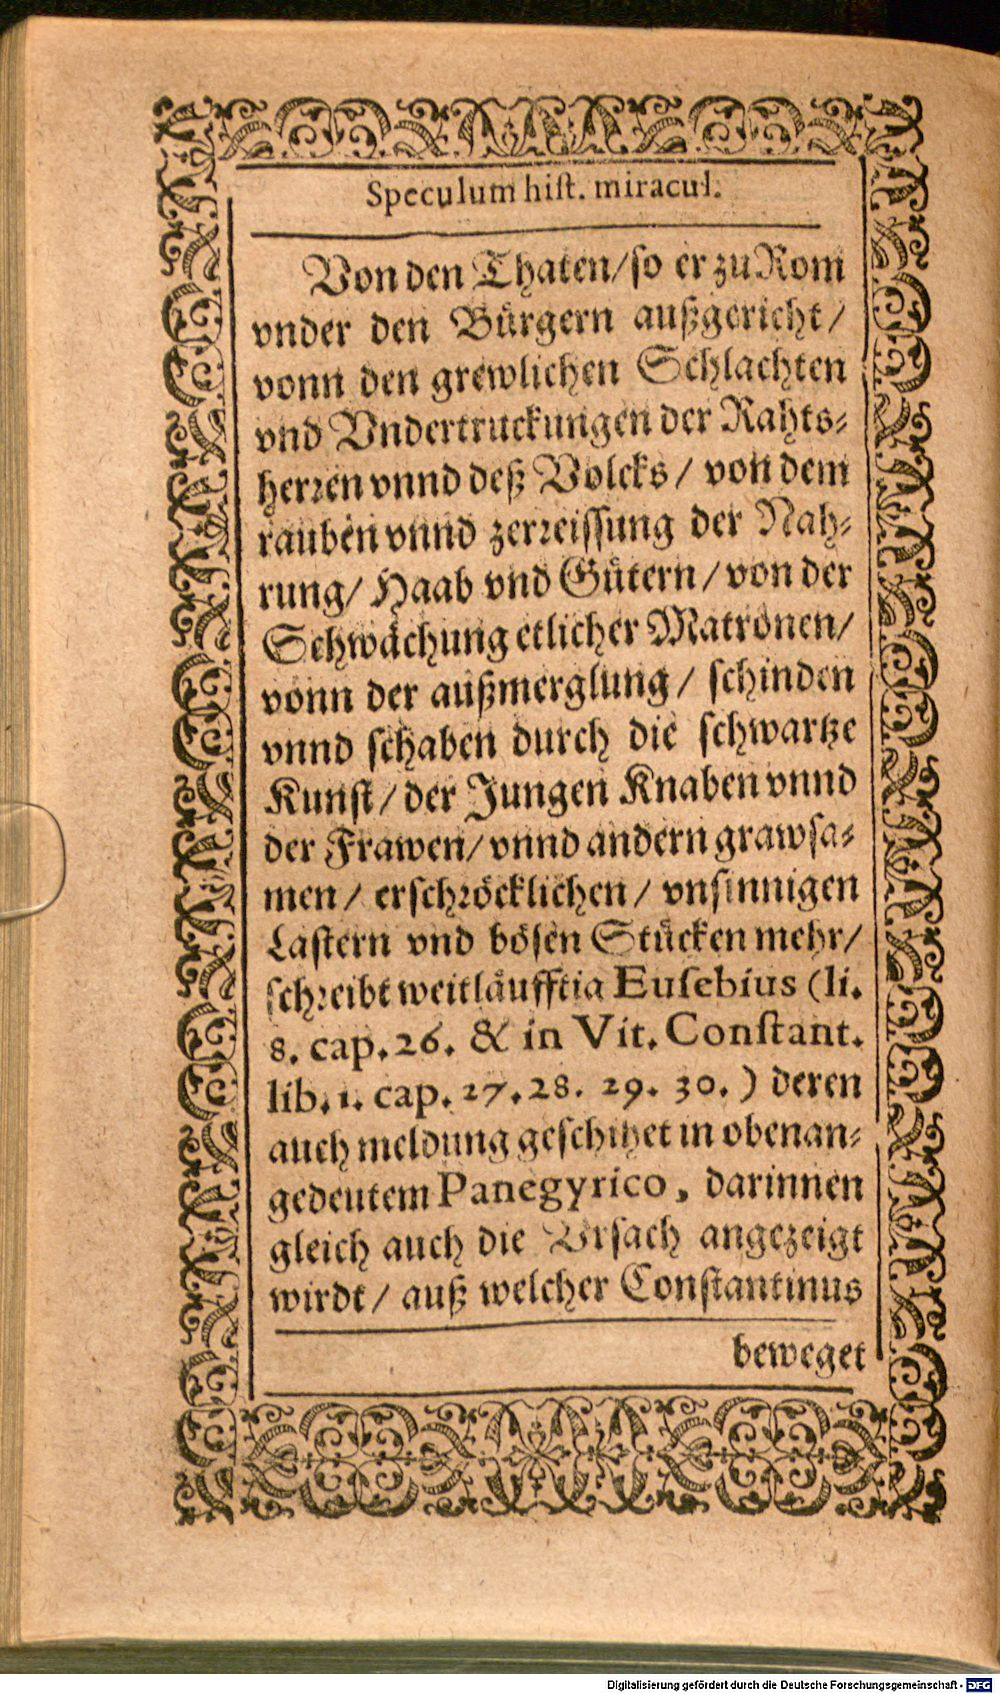 Speculum hist. miracul.
Von den Thaten/so er zu Rom
vnder den Bürgern außgericht/
vonn den grewlichen Schlachten
vnd Vndertruckungen der Rahts-
herren vnnd deß Volcks/ von dem
rauben vnnd zerreissung der Nah-
rung/ Haab vnd Gütern/von der
Schwächung etlicher Matronen/
vonn der außmerglung/ schinden
vnnd schaben durch die schwartze
Kunst/der Jungen Knaben vnnd
der Frawen/vnnd andern grawsa-
men/ erschröcklichen/ vnsinnigen
Lastern vnd bösen Stücken mehr/
schreibt weitläufftig Eusebius (li.
8. cap. 26. & in Vit. Constant.
lib. 1. cap. 27. 28. 29. 30.) deren
auch meldung geschihet in obenan-
gedeutem Panegyrico, darinnen
gleich auch die Vrsach angezeigt
wirdt/ auß welcher Constantinus
beweget
Digitalisierung gefördert durch die Deutsche Forschungsgemeinschaft - DFG